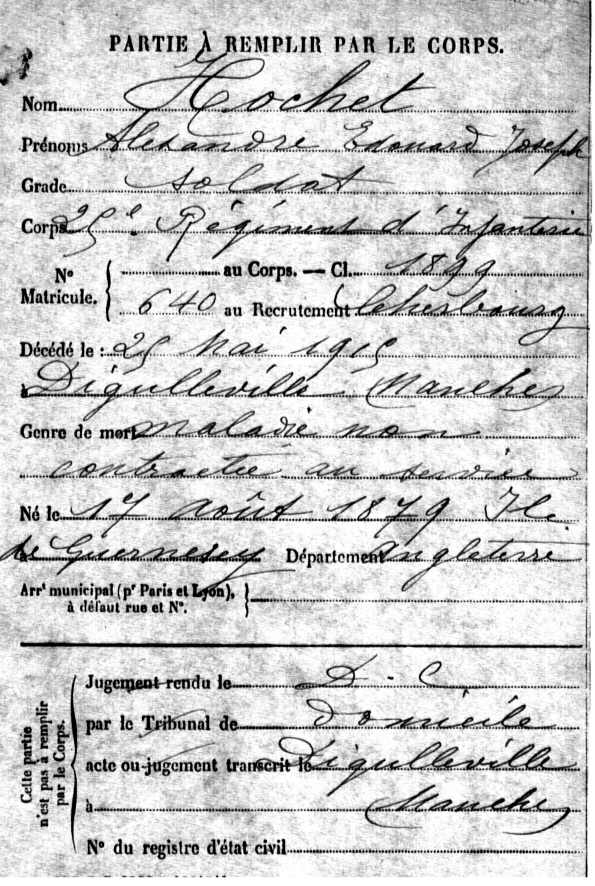 PARTIE À REMPLIR PAR LE CORPS.
Nom Hochet
Prénoms Alexandre Edouard Joseph
Grade soldat
Corps 25e Régiment d'Infanterie
No Matricule. { au Corps. — Cl. 1899
640 au Recrutement Cherbourg
Décédé le : 25 Mai 1915
à Digulleville (Manche)
Genre de mort maladie non
contractée au service
Né le 17 Août 1879 Ile
de Guernesey Département Angleterre
Arrt municipal (pr Paris et Lyon), à défaut rue et No. }
Cette partie n'est pas à remplir par le Corps.
Jugement rendu le D. C.
par le Tribunal de Domicile
acte ou jugement transcrit le Digulleville
à (Manche)
No du registre d'état civil